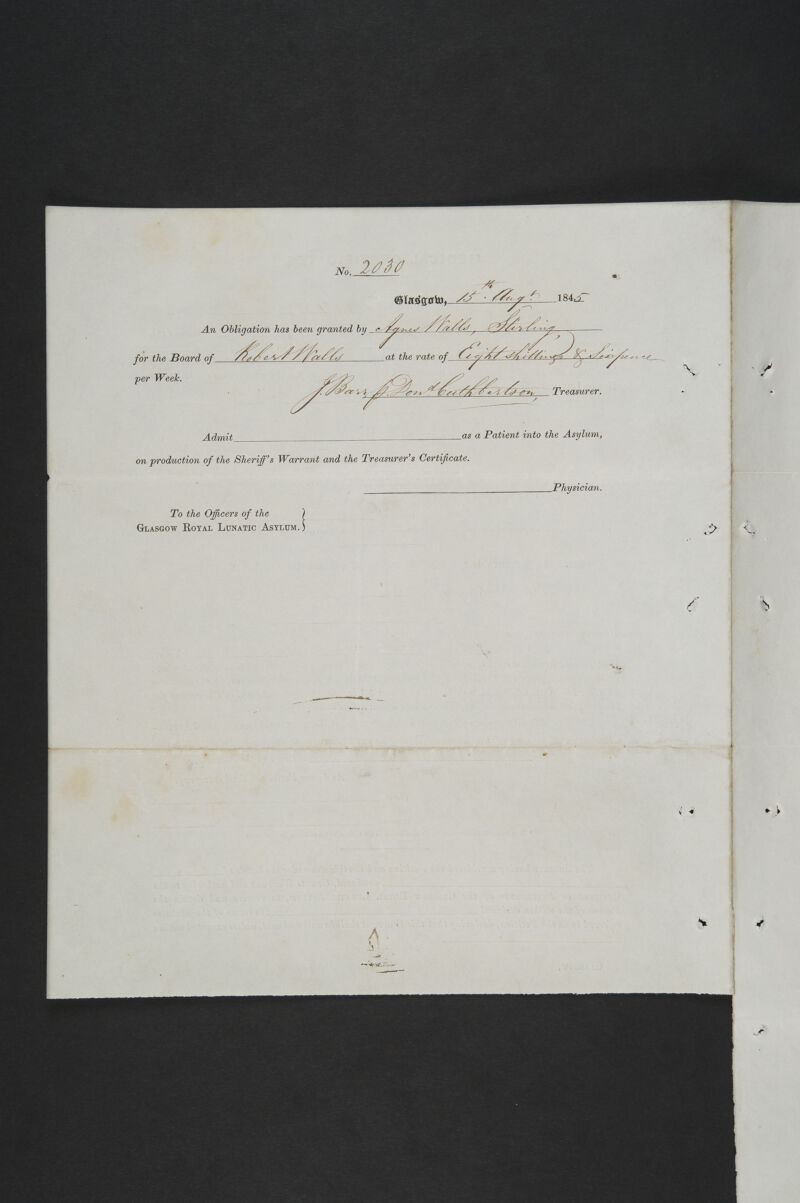 No. 2030
Glasgow, 15th Augt 1845
An Obligation has been granted by Agnes Walls, Stirling,
for the Board of Robert Walls at the rate of Eight shillings & Sixpence
per Week.
J. Barr p Dond Cuthbertson, Treasurer.
Admit as a Patient into the Asylum,
on production of the Sheriff's Warrant and the Treasurer's Certificate.
Physician.
To the Officers of the }
GLASGOW ROYAL LUNATIC ASYLUM. }